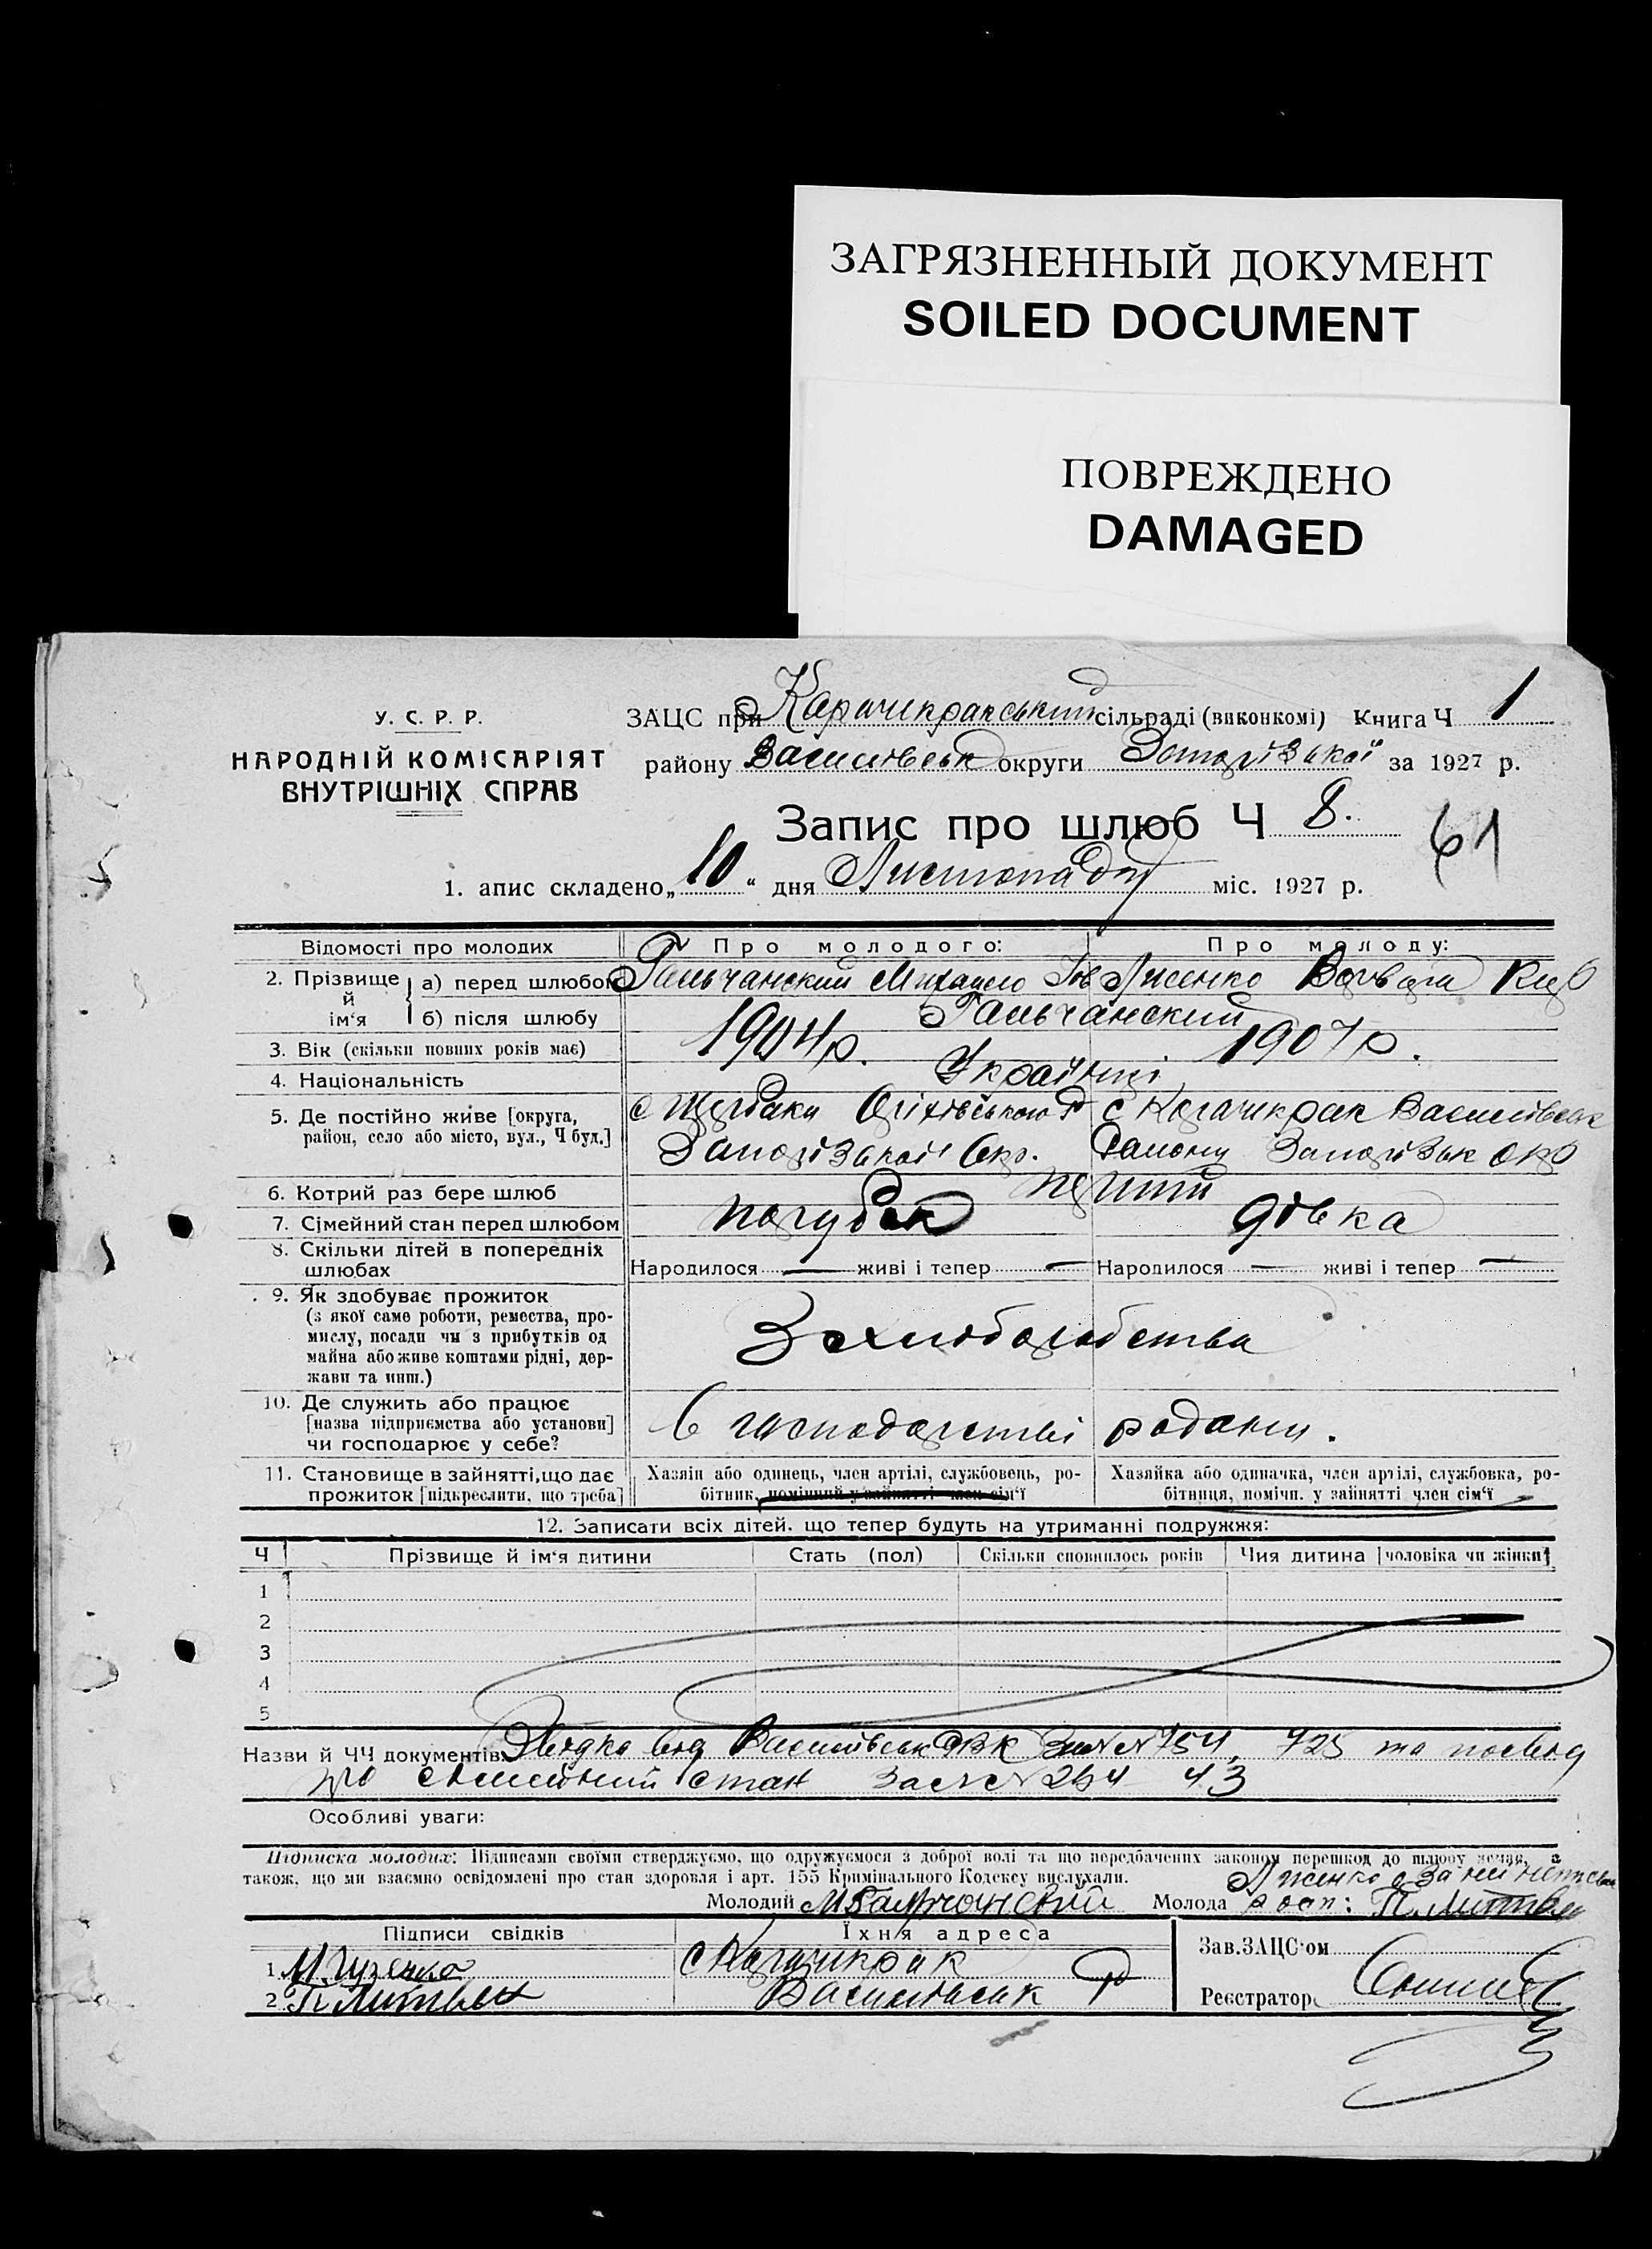 ЗАГРЯЗНЕННЫЙ ДОКУМЕНТ
SOILED DOCUMENT
ПОВРЕЖДЕНО
DAMAGED
У. С. Р. Р.
НАРОДНІЙ КОМІСАРІЯТ
ВНУТРІШНІХ СПРАВ
ЗАЦС при Карачикракський сільраді (виконкомі) Книга Ч 1
району Василівськ округи Запорізької за 1927 р.
Запис про шлюб Ч 8.
61
1. апис складено „10“ дня Листопада міс. 1927 р.
Відомості про молодих Про молодого: Про молоду:
2. Прізвище й ім‘я а) перед шлюбом Гальчанский Михайло Лисенко Варвара
б) після шлюбу Гальчанский
3. Вік (скільки повних років має) 1904 р. 1907 р.
4. Національність Українці
5. Де постійно живе [округа, район, село або місто, вул., Ч буд.]
с Щербаки Оріхівського р с Карачикрак Василівськ
Запорізької Окр. Району Запорізьк Окр
6. Котрий раз бере шлюб перший
7. Сімейний стан перед шлюбом парубок дівка
8. Скільки дітей в попередніх
шлюбах Народилося — живі і тепер — Народилося — живі і тепер —
9. Як здобуває прожиток
(з якої саме роботи, ремества, про-
мислу, посади чи з прибутків од
майна або живе коштами рідні, дер-
жави та инш.)
З хліборобства
10. Де служить або працює
[назва підприємства або установи]
чи господарює у себе?
в господарстві родини.
11. Становище в зайнятті, що дає
прожиток [підкреслити, що треба]
Хазяїн або одинець, член артілі, службовець, ро-
бітник, помічний у зайнятті член сім‘ї
Хазяйка або одиначка, член артілі, службовка, ро-
бітниця, помічн. у зайнятті член сім‘ї
12. Записати всіх дітей. що тепер будуть на утриманні подружжя:
Ч Прізвище й ім‘я дитини Стать (пол) Скільки сповнилось років Чия дитина [чоловіка чи жінки]
1
2
3
4
5
Назви й ЧЧ документів: Довідка від Василівськ 754, 725 та посвід
про сімейний стан за №№ 264 43
Особливі уваги:
Підписка молодих: Підписами своїми стверджуємо, що одружуємося з доброї волі та що передбачених законом перешкод до шлюбу немає, а
також, що ми взаємно освідомлені про стан здоровля і арт. 155 Кримінального Кодексу вислухали.
Лисенко а за неї неписьм
Молодий М Гальчанский Молода росп: П. Литвин
Підписи свідків Їхня адреса
1. с Карачикрак
2. П Литвин Василівськ Р
Зав. ЗАЦС‘ом
Реєстратор